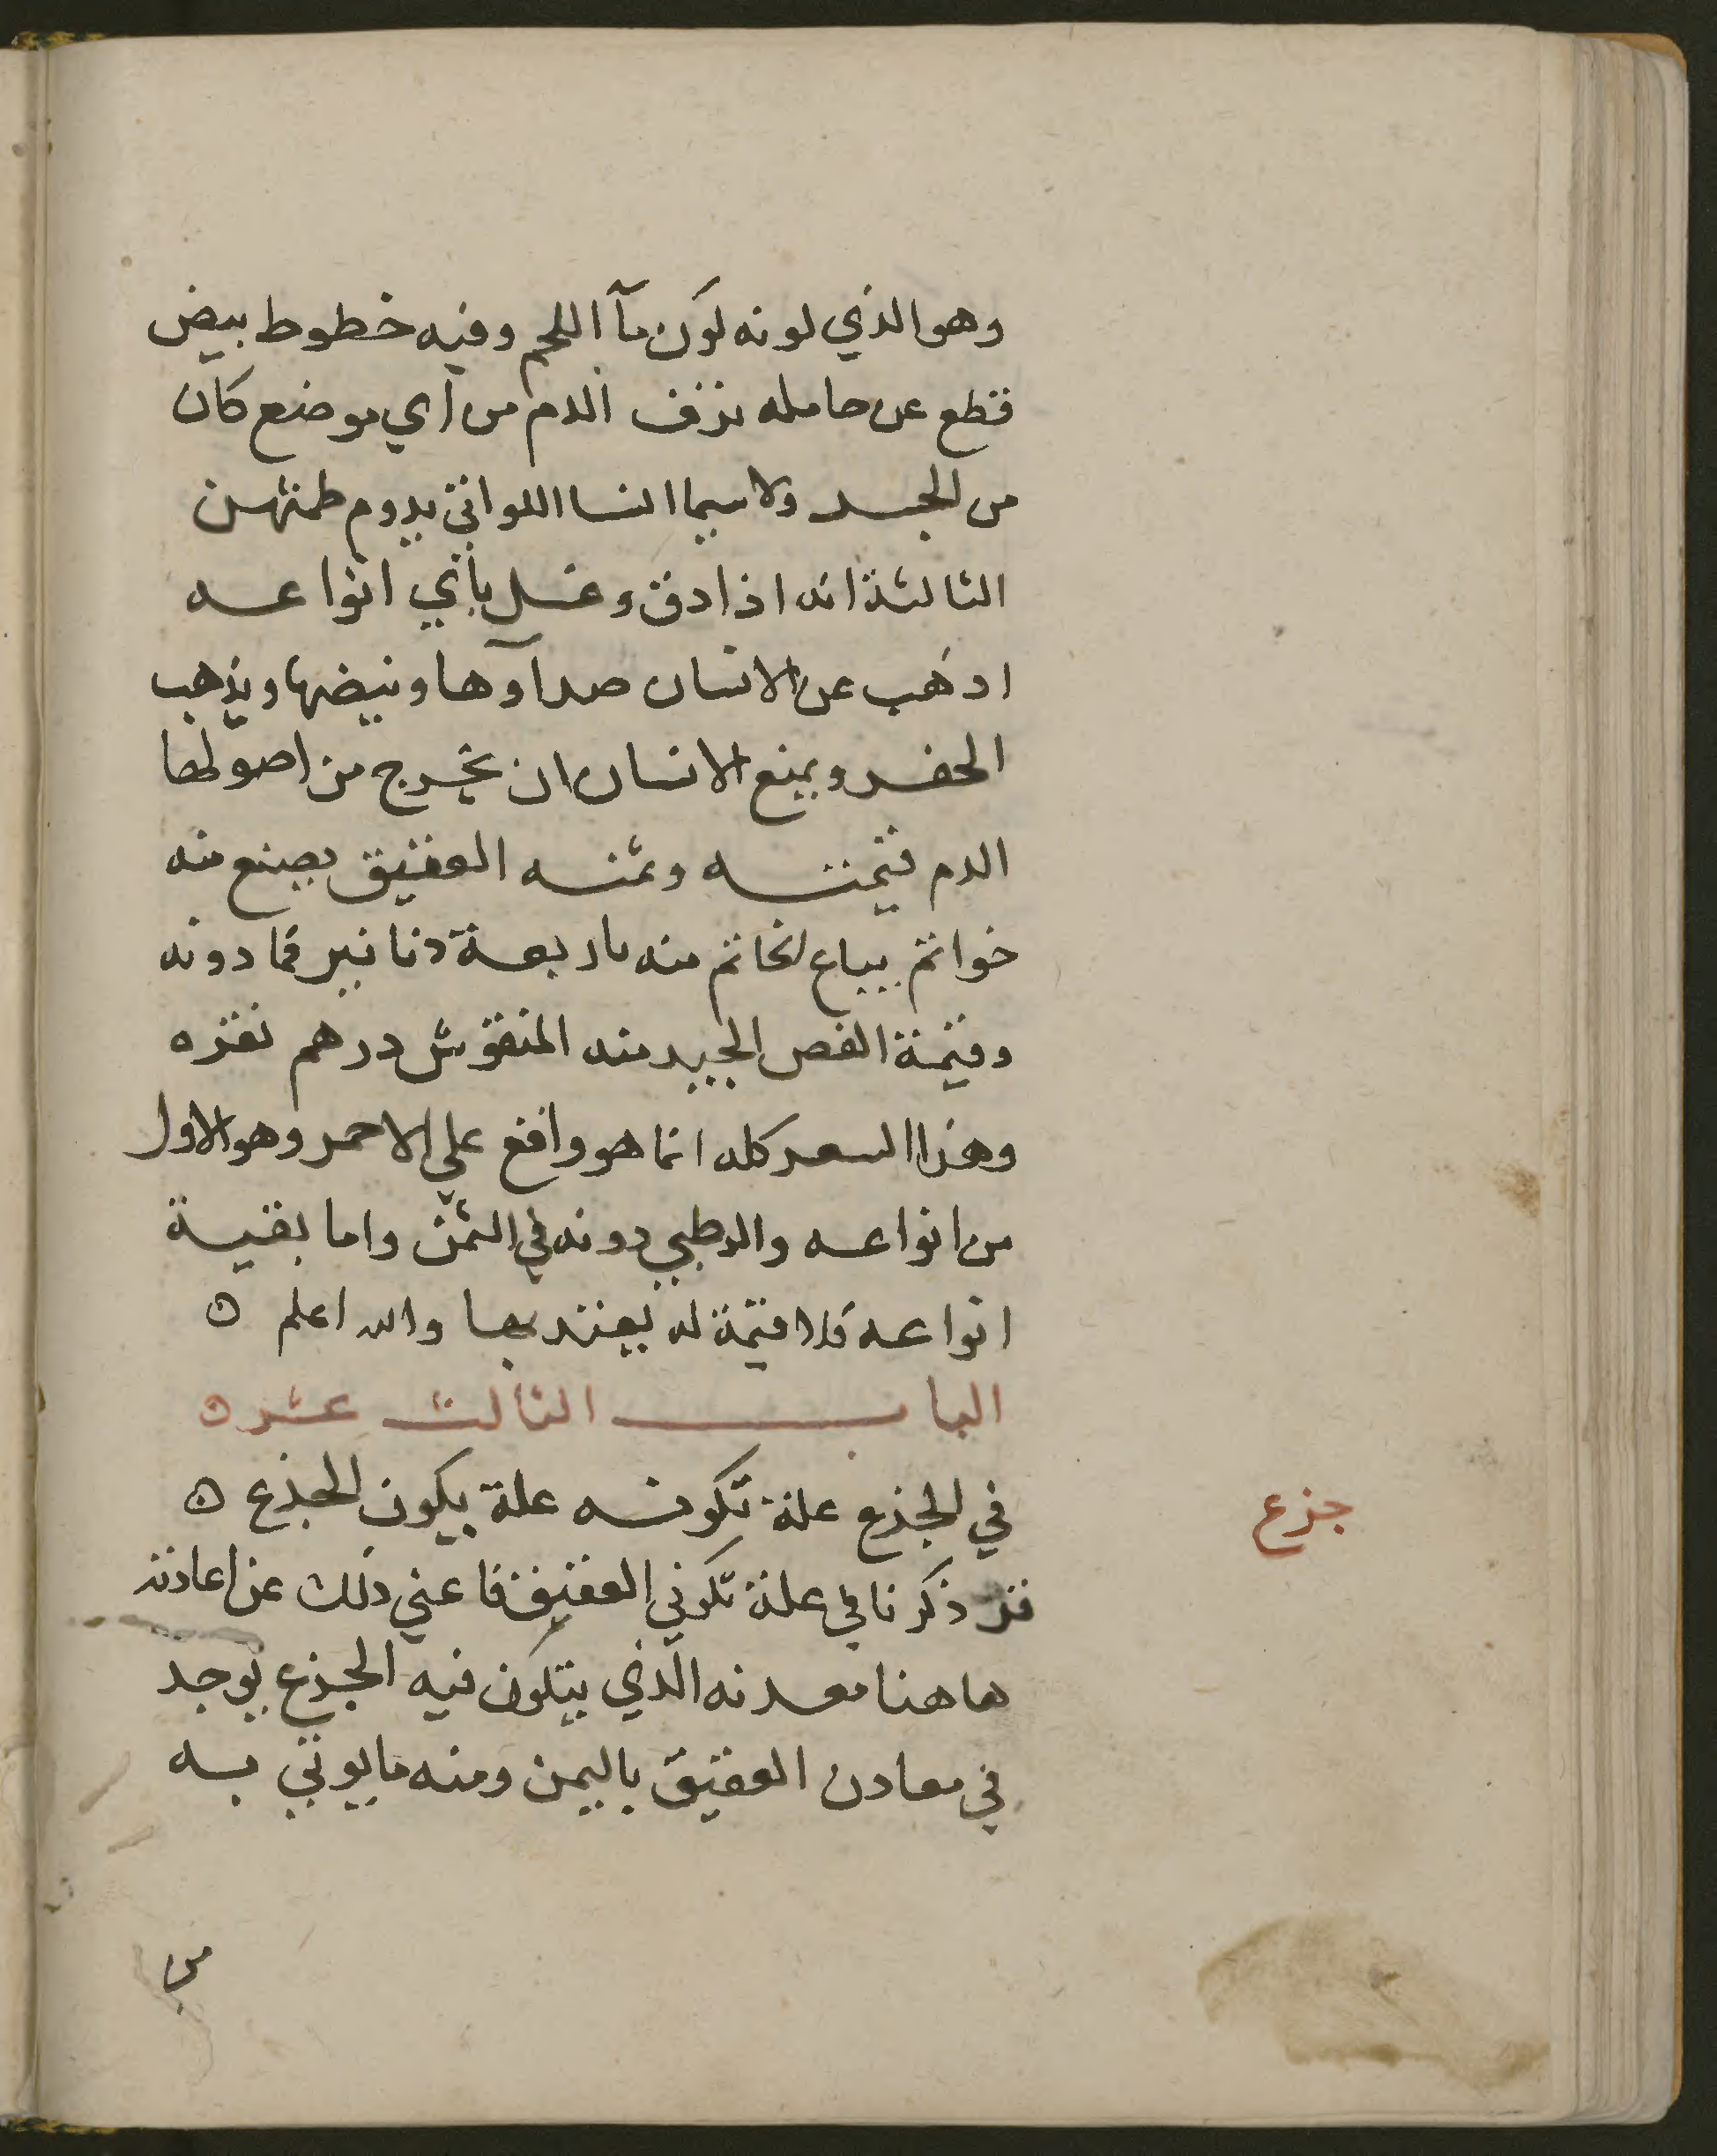 وهو الذي لونه لون مآ اللحم وفيه خطوط بيض
قطع عن حامله نزف الدم من اي موضع كان
من الجسد ولا سيما النسا اللواتي يدوم طمثهن
الثالثة انه اذا دق وغسل بأي انواعه
اذهب عن الاسنان صدآوها وبيضها ويذهب
الحفر ويمنع الاسنان ان يخرج من اصولها
الدم قيمته وثمنه العقيق يصنع منه
خواتم يباع لخاتم منه باربعة دنانير فما دونه
وقيمة الفص الجيد منه المنقوش درهم نقره
وهذا السعر كله انما هو واقع علي الاحمر وهو الاول
من انواعه والرطبي دونه في الثمن واما بقية
انواعه فلا قيمة له يعتد بها والله اعلم ه
الباب الثالث عشر ه
في الجزع علة تكونه علة يكون الجزع ه
جزع
قد ذكرنا في علة تكوني العقيق فاغني ذلك عن اعادته
هاهنا معدنه الذي يتكون فيه الجزع يوجد
في معادن العقيق باليمن ومنه ما يوتي به
من